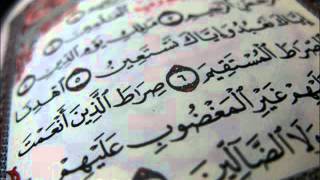 الرَّحِيمِ ۝ مَٰلِكِ يَوْمِ الدِّينِ
إِيَّاكَ نَعْبُدُ وَإِيَّاكَ نَسْتَعِينُ ۝ اهْدِنَا
الصِّرَاطَ الْمُسْتَقِيمَ ۝٦ صِرَاطَ الَّذِينَ أَنْعَمْتَ
غَيْرِ الْمَغْضُوبِ عَلَيْهِمْ
وَلَا الضَّالِّينَ